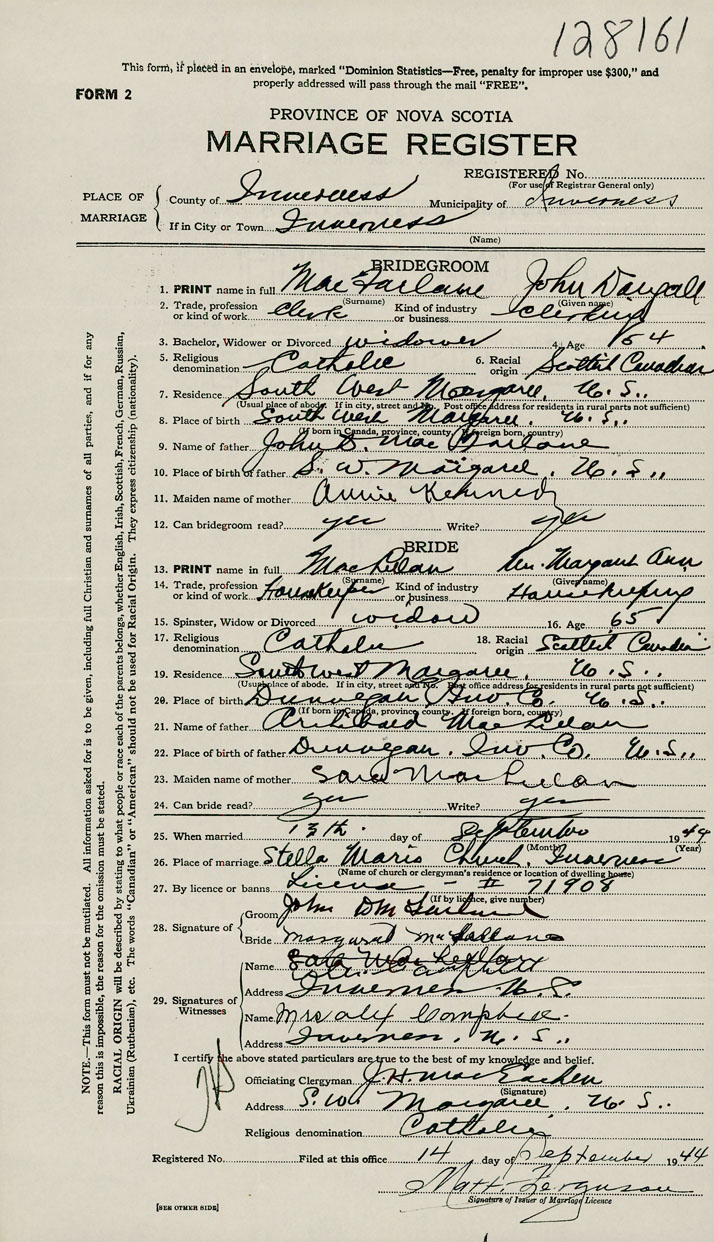 128161
This form, if placed in an envelope, marked "Dominion Statistics—Free, penalty for improper use $300," and
properly addressed will pass through the mail "FREE".
FORM 2
PROVINCE OF NOVA SCOTIA
MARRIAGE REGISTER
REGISTERED No.
(For use of Registrar General only)
PLACE OF MARRIAGE
County of Inverness Municipality of Inverness
If in City or Town Inverness
(Name)
BRIDEGROOM
1. PRINT name in full MacFarlane John Dougall
(Surname) (Given name)
2. Trade, profession or kind of work Clerk Kind of industry or business Clerking
3. Bachelor, Widower or Divorced widower 4. Age 64
5. Religious denomination Catholic 6. Racial origin Scottish Canadian
7. Residence South West Margaree, N.S..
(Usual place of abode. If in city, street and No. Post office address for residents in rural parts not sufficient)
8. Place of birth South West Margaree, N.S..
(If born in Canada, province, county. If foreign born, country)
9. Name of father John D. MacFarlane
10. Place of birth of father S. W. Margaree, N.S..
11. Maiden name of mother Annie Kennedy
12. Can bridegroom read? yes Write? yes
BRIDE
13. PRINT name in full MacLellan Margaret Ann
(Surname) (Given name)
14. Trade, profession or kind of work Housekeeper Kind of industry or business Housekeeping
15. Spinster, Widow or Divorced widow 16. Age 65
17. Religious denomination Catholic 18. Racial origin Scottish Canadian
19. Residence South West Margaree, N.S..
(Usual place of abode. If in city, street and No. Post office address for residents in rural parts not sufficient)
20. Place of birth Dunvegan Inv. Co. N.S..
(If born in Canada, province, county. If foreign born, country)
21. Name of father Archibald MacLellan
22. Place of birth of father Dunvegan, Inv. Co. N.S..
23. Maiden name of mother Sara MacLellan
24. Can bride read? yes Write? yes
25. When married 13th. day of September 1944
(Month) (Year)
26. Place of marriage Stella Maris Church, Inverness
(Name of church or clergyman's residence or location of dwelling house)
27. By licence or banns License, - # 71908
(If by licence, give number)
28. Signature of
Groom John D McFarland
Bride Margaret McFarlane
29. Signatures of Witnesses
Name
Address Inverness N.S.
Name Mrs Alex Campbell
Address Inverness, N.S..
I certify the above stated particulars are true to the best of my knowledge and belief.
Officiating Clergyman J. H. MacEachen
(Signature)
Address S. W. Margaree, N.S..
Religious denomination Catholic
Registered No. Filed at this office 14 day of September 1944
Matt. Ferguson
Signature of Issuer of Marriage Licence
[SEE OTHER SIDE]
NOTE.—This form must not be mutilated. All information asked for is to be given, including full Christian and surnames of all parties, and if for any
reason this is impossible, the reason for the omission must be stated.
RACIAL ORIGIN will be described by stating to what people or race each of the parents belongs, whether English, Irish, Scottish, French, German, Russian,
Ukrainian (Ruthenian), etc. The words "Canadian" or "American" should not be used for Racial Origin. They express citizenship (nationality).